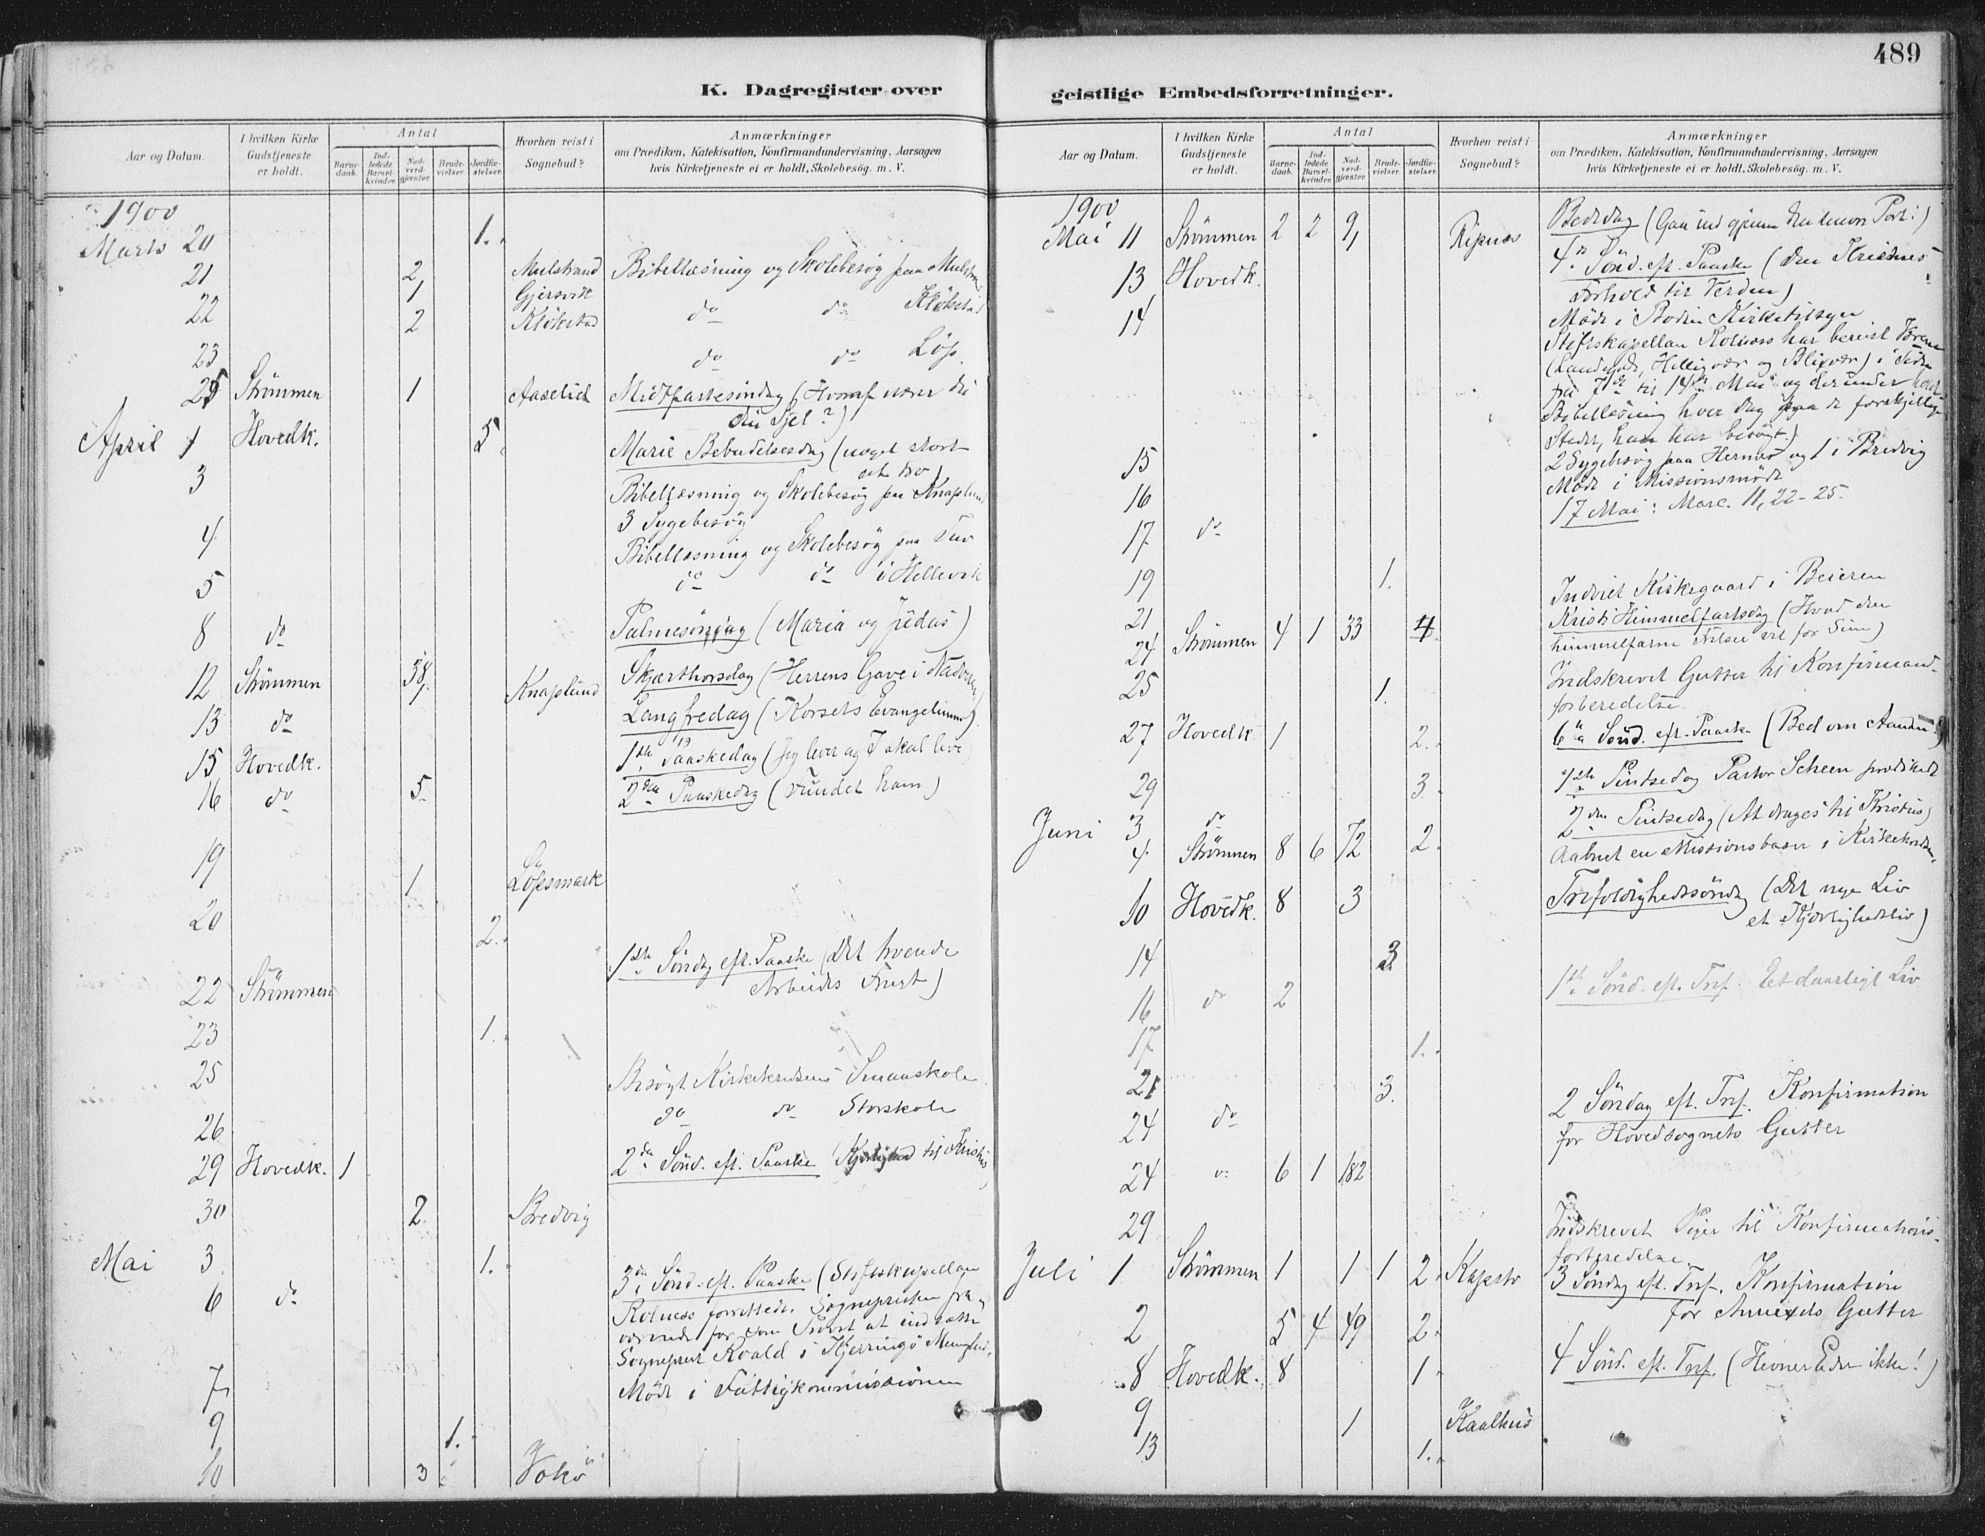 489
K. Dagregister over
geistlige Embedsforretninger.
Aar og Datum.
I hvilken Kirke Gudstjeneste er holdt.
Antal
Barnedaab.
Indledede Barselkvinder.
Nadverdgjæster.
Brudevielser.
Jordfæstelser.
Hvorhen reist i Sognebud?
Anmærkninger
om Prædiken, Katekisation, Konfirmandundervisning, Aarsagen
hvis Kirketjeneste ei er holdt, Skolebesøg. m. V.
1900
Marts 20 1.
21 2 Mulstrand Bibellæsning og Skolebesøg paa
1 Gjersvik
22 2 Kløkstad do do Kløkstad
23 do do Løp
25 Strømmen 1 Aaselid Midtfastesøndag (Hvoraf nærer du
din Sjel?)
April 1 Hovedk. 5 Marie Bebudelsesdag (noget stort
at tro)
3 Bibellæsning og Skolebesøg paa Knaplund
3 Sygebesøg
4 Bibellæsning og Skolebesøg paa Tuv
5 do do i Hellevik
8 do Palmesøndag (Maria og Judas)
12 Strømmen 38 Skjærthorsdag (Herrens Gave i Nadveren)
1 Knaplund
13 do Langfredag (Korsets Evangelium)
15 Hovedk. 1ste Paaskedag (Jeg lever og I skal leve
16 do 5 2den Paaskedag (fundet ham)
19 1 Løpsmark
20 2.
22 Strømmen 1ste Søndag eft. Paaske (Det troende
Arbeides Frugt)
23 1.
25 Besøgt Kirkekredsens Smaaskole
26 do do Storskole
29 Hovedk. 1 2den Sønd. eft. Paaske (Kjærlighed til Kristus)
30 2 Bredvig
Mai 3 1.
6 do 3die Sønd. eft. Paaske (Stiftskapellan
Rolness forrettede. Sognepresten fra-
værende for som Provst at indsætte
Sogneprest Roald i Kjerringø Menighed.
7 Møde i Fattigkommissionen
9 1.
10 3
Aar og Datum.
I hvilken Kirke Gudstjeneste er holdt.
Antal
Barnedaab.
Indledede Barselkvinder.
Nadverdgjæster.
Brudevielser.
Jordfæstelser.
Hvorhen reist i Sognebud?
Anmærkninger
om Prædiken, Katekisation, Konfirmandundervisning, Aarsagen
hvis Kirketjeneste ei er holdt, Skolebesøg. m. V.
1900
Mai 11 Strømmen 2 2 9 Bededag (Gaa ind gjennem den snevre Port!)
1 Ripnes
13 Hovedk. 4de Sønd. eft. Paaske (Den Kristnes
Forhold til Verden)
14 Møde i Bodin Kirketilsyn
Stiftskapellan Rolness har bereist
(Landegode, Helligvær og Blixvær) i Tiden
fra 7de til 14de Mai og derunder holdt
Bibellæsning hver Dag paa de forskjellige
Steder, han har besøgt.)
15 2 Sygebesøg paa Hernes og 1 i Bredvig
16 Møde i Missionsmøde
17 do 17 Mai: Marc. 11, 22-25.
19 1.
21 Indviet Kirkegaard i Beieren
24 Strømmen 4 1 33 4. Kristi Himmelfartsdag (Hvad den
himmelfarne Frelser vil for Sine)
25 1. Indskrevet Gutter til Konfirmand-
forberedelse
27 Hovedk 1 2. 6te Sønd. eft. Paaske (Bed om Aanden!)
29 3.
Juni 3 do 1ste Pintsedag Pastor Scheen prædikede
4 Strømmen 8 6 72 2. 2den Pintsedag (At drages til Kristus)
Aabnet en Missionsbasar i Kirkekredsen.
10 Hovedk. 8 3 Trefoldighedssøndag (Det nye Liv
et Kjærlighedsliv)
14 3
16 do 2 1ste Sønd. eft. Tref. Et daarligt Liv
17 1.
21 3.
24 do 2 Søndag eft. Tref. Konfirmation
for Hovedsognets Gutter
24 6 1 182
29 Indskrevet Piger til Konfirmations-
forberedelse
Juli 1 Strømmen 1 1 1 2. 3 Søndag eft. Tref. Konfirmation
for Annexets Gutter
2 5 4 49 2.
8 Hovedk. 8 1 4 Sønd. eft. Tref. (Hevner Eder ikke!)
9 1
13 1.